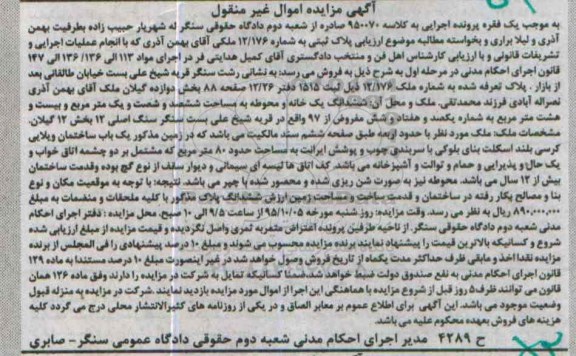 آگهی مزایده اموال غیر منقول
به موجب یک فقره پرونده اجرایی به کلاسه ۹۵۰۰۷۰ صادره از شعبه دوم دادگاه حقوقی سنگر له شهریار حبیب زاده بطرفیت بهمن
آذری و لیلا براری و بخواسته مطالبه موضوع ارزیابی پلاک ثبتی به شماره ۱۲/۱۷۶ ملکی آقای بهمن آذری که با انجام عملیات اجرایی و
تشریفات قانونی و با ارزیابی کارشناس اهل فن و منتخب دادگستری آقای کمیل هدایتی فر در اجرای مواد ۱۱۳ الی ۱۳۶/ ۱۳۶ الی ۱۴۷
قانون اجرای احکام مدنی در مرحله اول به شرح ذیل به فروش می رسد: به نشانی رشت سنگر قریه شیخ علی بست خیابان طالقانی بعد
از بازار . پلاک تعرفه شده به شماره ملک ۱۲/۱۷۶ ذیل ثبت ۱۵۱۵ دفتر ۱۲/۲۶ صفحه ۸۸ بخش دوازده گیلان ملک آقای بهمن آذری
نصراله آبادی فرزند محمدتقی. ملک و محل آن: ششدانگ یک خانه و محوطه به مساحت ششصد و شصت و یک متر مربع و بیست و
هشت متر مربع به شماره یکصد و هفتاد و شش مفروز از ۹۷ واقع در قریه شیخ علی بست سنگر سنگ اصلی ۱۲ بخش ۱۲ گیلان.
مشخصات ملک: ملک مورد نظر با حدود اربعه طبق صفحه ششم سند مالکیت می باشد که در زمین مذکور یک باب ساختمان ویلایی
کرسی بلند اسکلت بنای بلوکی با سربندی چوب و پوشش ایرانت به مساحت حدود ۸۰ متر مربع که مشتمل بر دو چشمه اتاق خواب و
یک حال و پذیرایی و حمام و توالت و آشپزخانه می باشد. کف اتاق ها تیسه ای سیمانی و دیوار سقف از نوع گچ بوده وقدمت ساختمان
بیش از ۱۲ سال می باشد. محوطه نیز به صورت شن ریزی شده و محصور شده با چپر می باشد. نتیجه: با توجه به موقعیت مکان و نوع
بنا و مصالح بکار رفته در ساختمان و قدمت ساخت و مساحت زمین ارزش ششدانگ پلاک مذکور با کلیه ملحقات و منضمات به مبلغ
۸۹۰،۰۰۰،۰۰۰ ریال به نظر می رسد. وقت مزایده: روز شنبه مورخه ۹۵/۱۰/۰۵ از ساعت ۹/۵ الی ۱۰ صبح. محل مزایده : دفتر اجرای احکام
مدنی شعبه دوم دادگاه حقوقی سنگر. از ناحیه طرفین پرونده اعتراض مثمربه ثمری واصل نگردیده و قیمت مزایده از مبلغ ارزیابی شده
شروع و کسانیکه بالاترین قیمت را پیشنهاد نمایند برنده مزایده محسوب می شوند و مبلغ ۱۰ درصد پیشنهادی را فی المجلس از برنده
مزایده نقدا اخذ و مابقی ظرف حداکثر مدت یکماه از تاریخ فروش وصول خواهد شد در غیر اینصورت مبلغ ۱۰ درصد مستندا به ماده ۱۲۹
قانون اجرای احکام مدنی به نفع صندوق دولت ضبط خواهد شد. ضمنا کسانیکه تمایل به شرکت در مزایده را دارند وفق ماده ۱۲۶ همان
قانون می توانند ظرف۵ روز قبل از شروع مزایده با هماهنگی این اجرا از اموال مورد مزایده بازدید نمایند .شرکت در مزایده به منزله قبول
وضعیت موجود می باشد. این آگهی برای اطلاع عموم بر معابر الصاق و در یکی از روزنامه های کثیرالانتشار محلی درج می گردد کلیه
هزینه های فروش بعهده محکوم علیه می باشد.
ح ۴۲۸۹ مدیر اجرای احکام مدنی شعبه دوم حقوقی دادگاه عمومی سنگر- صابری